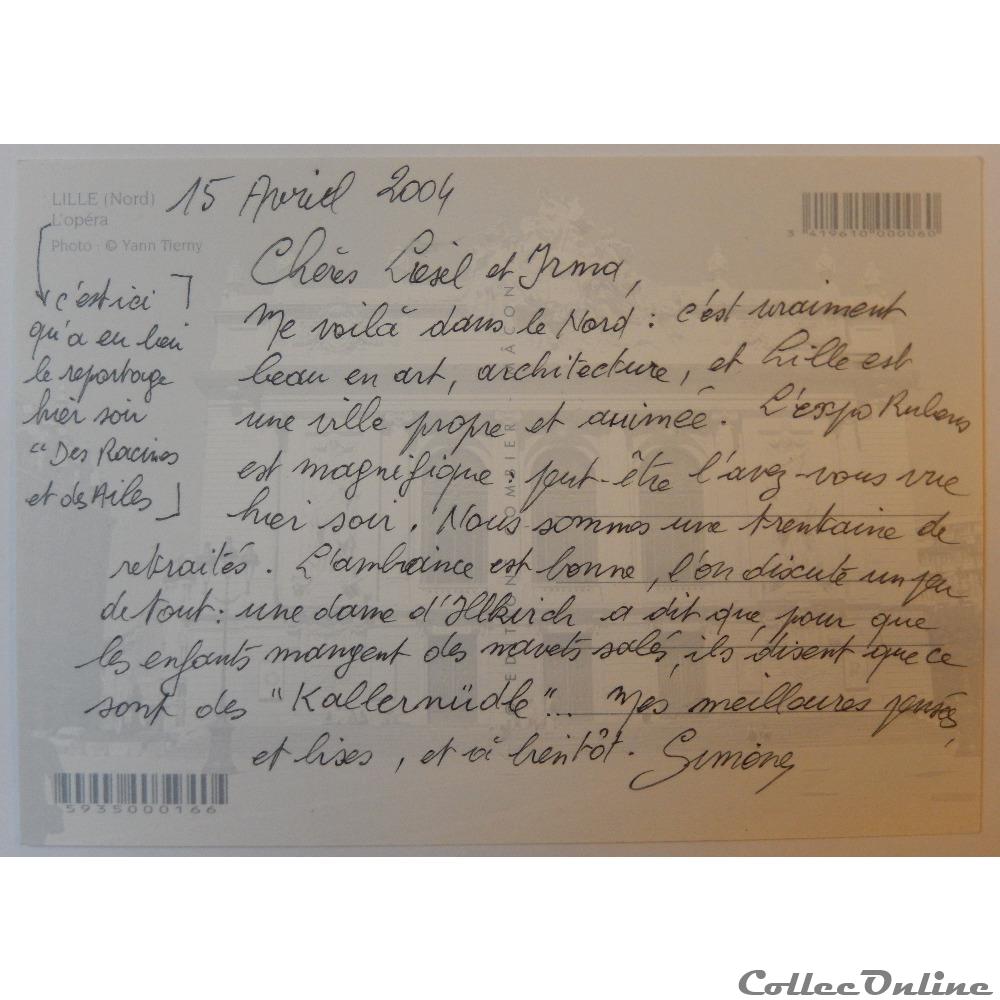 LILLE (Nord)
L'opéra
Photo : © Yann Tierny
15 Avril 2004
3 419610 000060
Chères Liesel et Irma,
Me voilà dans le Nord : c'est vraiment
beau en art, architecture, et Lille est
une ville propre et animée. L'expo Rubens
est magnifique peut-être l'avez-vous vue
hier soir. Nous sommes une trentaine de
retraités. L'ambiance est bonne, l'on discute un peu
de tout : une dame d'Illkirch a dit que, pour que
les enfants mangent des navets salés, ils disent que ce
sont des "Kallernüdle"... Mes meilleures pensées,
et bises, et à bientôt. Simone
c'est ici
qu'a eu lieu
le reportage
hier soir
"Des Racines
et des Ailes
EDITION COMBIER MÂCON
5935000166
CollecOnline